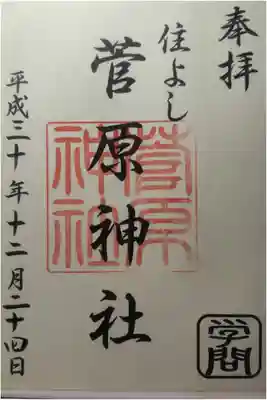 奉拝
住よし
菅原神社
菅原神社
平成三十年十二月二十四日
学問